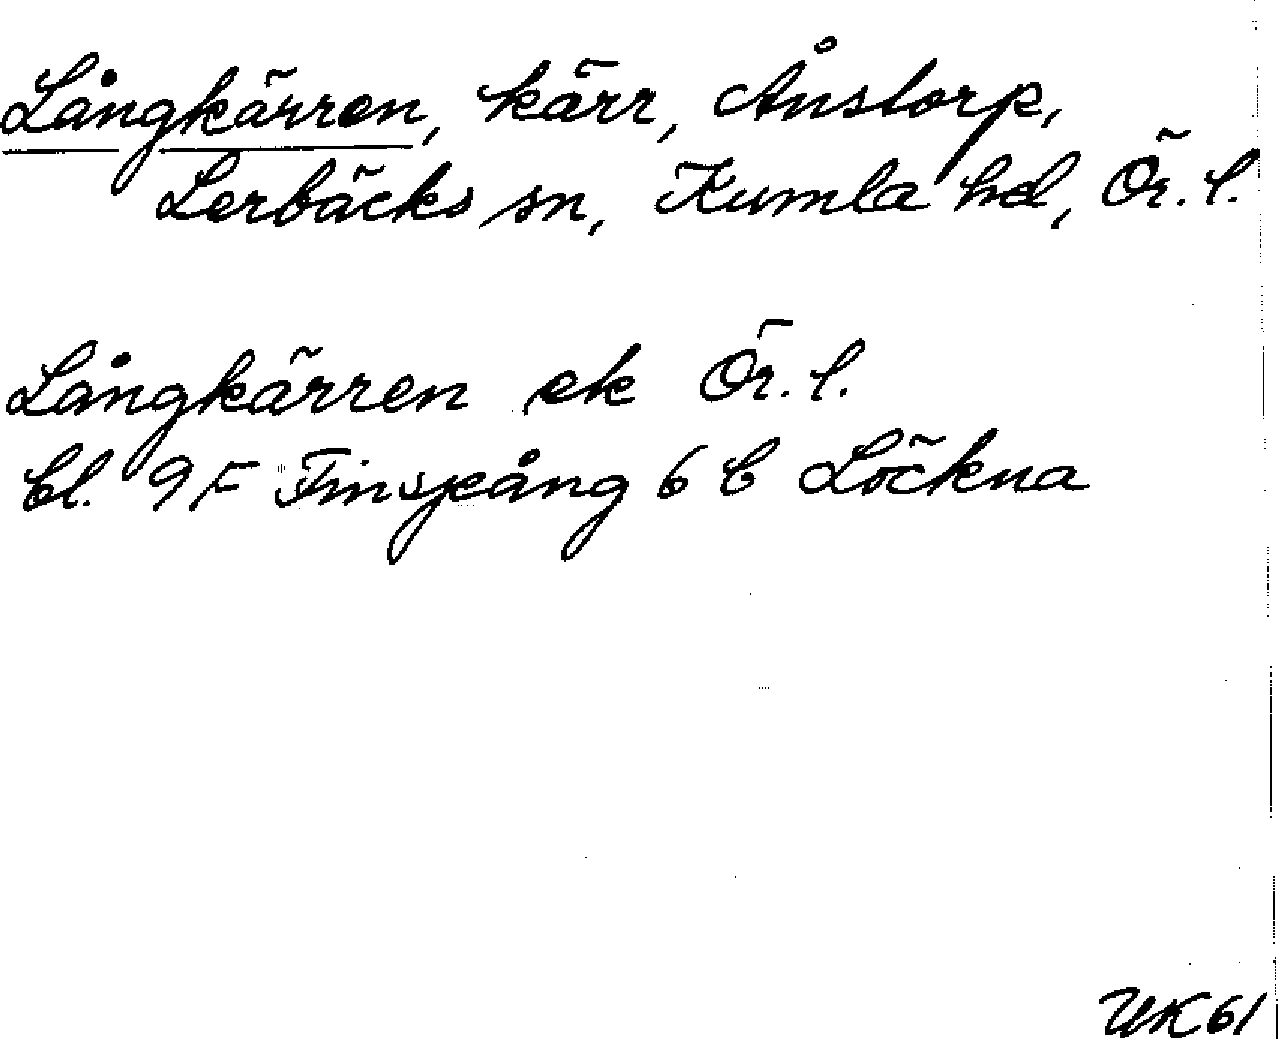 Långkärren, kärr, Ånstorp,
Lerbäcks sn, Kumla hd, Ör. l.
Långkärren ek Ör. l.
bl. 9F Finspång 6 b Löckna
UK61